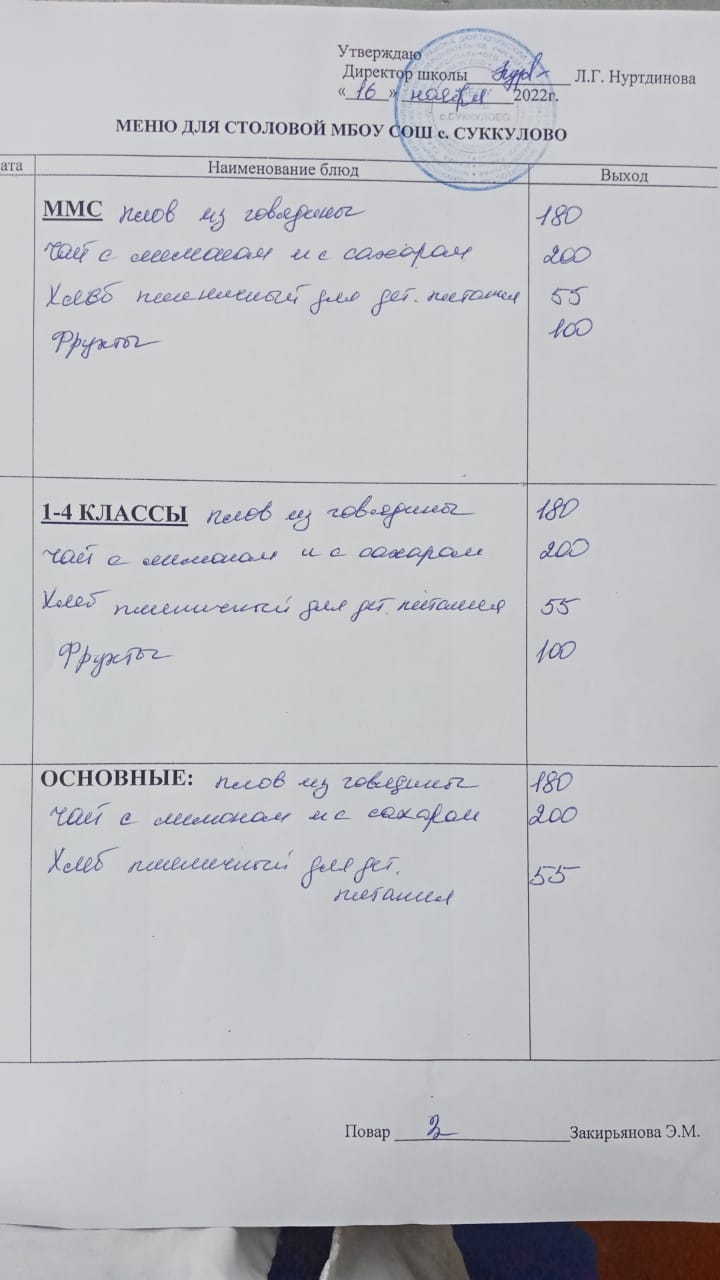 Утверждаю
Директор школы Л.Г. Нуртдинова
«16» ноября 2022г.
МЕНЮ ДЛЯ СТОЛОВОЙ МБОУ СОШ с. СУККУЛОВО
ата Наименование блюд Выход
ММС плов из говядины 180
Чай с лимоном и с сахаром 200
Хлеб пшеничный для дет. питания 55
Фрукты 100
1-4 КЛАССЫ плов из говядины 180
Чай с лимоном и с сахаром 200
Хлеб пшеничный для дет. питания 55
Фрукты 100
ОСНОВНЫЕ: плов из говядины 180
Чай с лимоном и с сахаром 200
Хлеб пшеничный для дет. 55
питания
Повар Закирьянова Э.М.
с.СУККУЛОВО